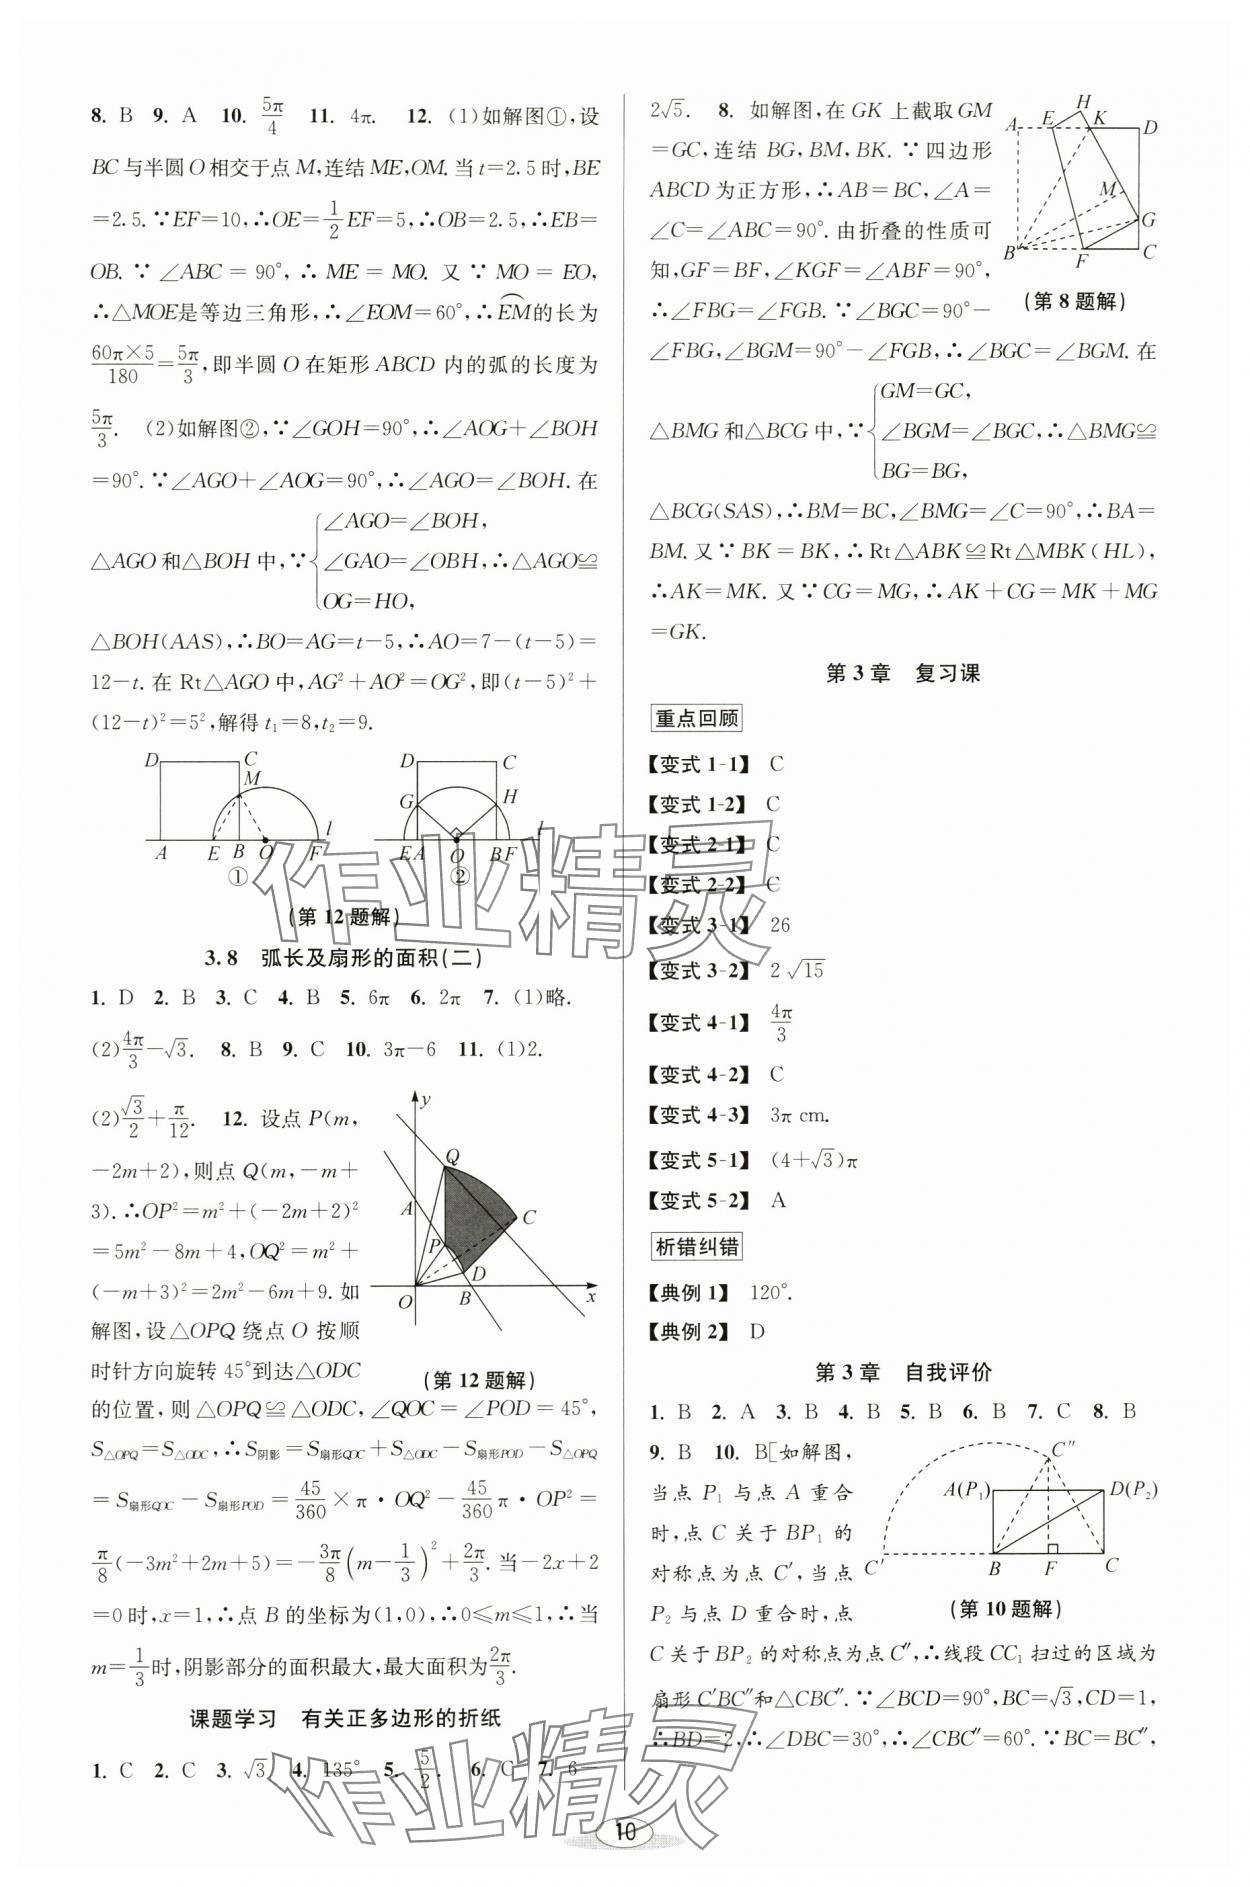 8. B 9. A 10. 5π/4 11. 4π. 12. (1)如解图①,设
BC与半圆O相交于点M,连结ME,OM.当t=2.5时,BE
=2.5.∵EF=10,∴OE=1/2EF=5,∴OB=2.5,∴EB=
OB.∵∠ABC=90°,∴ME=MO.又∵MO=EO,
∴△MOE是等边三角形,∴∠EOM=60°,∴EM⌒的长为
60π×5/180=5π/3,即半圆O在矩形ABCD内的弧的长度为
5π/3. (2)如解图②,∵∠GOH=90°,∴∠AOG+∠BOH
=90°.∵∠AGO+∠AOG=90°,∴∠AGO=∠BOH.在
△AGO和△BOH中,∵{∠AGO=∠BOH,
∠GAO=∠OBH,∴△AGO≌
OG=HO,
△BOH(AAS),∴BO=AG=t-5,∴AO=7-(t-5)=
12-t.在Rt△AGO中,AG²+AO²=OG²,即(t-5)²+
(12-t)²=5²,解得t₁=8,t₂=9.
D C M A E B O F l ①
D C G H E A O B F l ②
(第12题解)
3.8 弧长及扇形的面积(二)
1. D 2. B 3. C 4. B 5. 6π 6. 2π 7. (1)略.
(2)4π/3-√3. 8. B 9. C 10. 3π-6 11. (1)2.
(2)√3/2+π/12. 12. 设点P(m,
-2m+2),则点Q(m,-m+
3).∴OP²=m²+(-2m+2)²
=5m²-8m+4,OQ²=m²+
(-m+3)²=2m²-6m+9.如
解图,设△OPQ绕点O按顺
时针方向旋转45°到达△ODC
y Q A C P D O B x
(第12题解)
的位置,则△OPQ≌△ODC,∠QOC=∠POD=45°,
S△OPQ=S△ODC,∴S阴影=S扇形QOC+S△ODC-S扇形POD-S△OPQ
=S扇形QOC-S扇形POD=45/360×π·OQ²-45/360π·OP²=
π/8(-3m²+2m+5)=-3π/8(m-1/3)²+2π/3.当-2x+2
=0时,x=1,∴点B的坐标为(1,0),∴0≤m≤1,∴当
m=1/3时,阴影部分的面积最大,最大面积为2π/3.
课题学习 有关正多边形的折纸
1. C 2. C 3. √3 4. 135° 5. 5/2. 6. C 7. 6-
2√5. 8. 如解图,在GK上截取GM
=GC,连结BG,BM,BK.∵四边形
ABCD为正方形,∴AB=BC,∠A=
∠C=∠ABC=90°.由折叠的性质可
知,GF=BF,∠KGF=∠ABF=90°,
∴∠FBG=∠FGB.∵∠BGC=90°-
H A E K D M G B F C
(第8题解)
∠FBG,∠BGM=90°-∠FGB,∴∠BGC=∠BGM.在
△BMG和△BCG中,∵{GM=GC,
∠BGM=∠BGC,∴△BMG≌
BG=BG,
△BCG(SAS),∴BM=BC,∠BMG=∠C=90°,∴BA=
BM.又∵BK=BK,∴Rt△ABK≌Rt△MBK(HL),
∴AK=MK.又∵CG=MG,∴AK+CG=MK+MG
=GK.
第3章 复习课
重点回顾
【变式1-1】 C
【变式1-2】 C
【变式2-1】 C
【变式2-2】 C
【变式3-1】 26
【变式3-2】 2√15
【变式4-1】 4π/3
【变式4-2】 C
【变式4-3】 3π cm.
【变式5-1】 (4+√3)π
【变式5-2】 A
析错纠错
【典例1】 120°.
【典例2】 D
第3章 自我评价
1. B 2. A 3. B 4. B 5. B 6. B 7. C 8. B
9. B 10. B[如解图,
当点P₁与点A重合
时,点C关于BP₁的
对称点为点C′,当点
P₂与点D重合时,点
C″ A(P₁) D(P₂) C′ B F C
(第10题解)
C关于BP₂的对称点为点C″,∴线段CC₁扫过的区域为
扇形C′BC″和△CBC″.∵∠BCD=90°,BC=√3,CD=1,
∴BD=2,∴∠DBC=30°,∴∠CBC″=60°.∵BC=BC″,
10
作业精灵
作业精灵